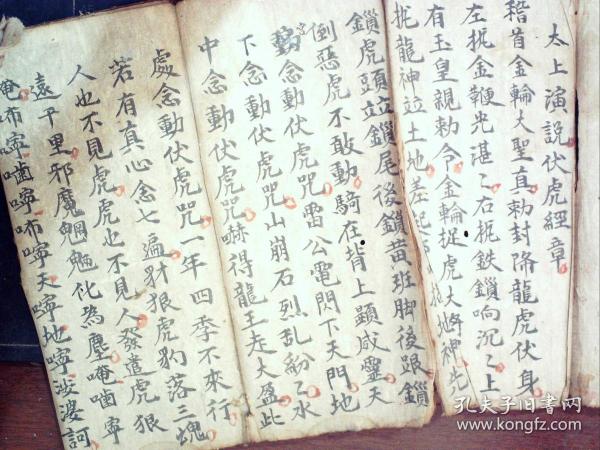 太上演説伏虎經章
稽首金輪大聖真勅封降龍虎伏身
左扼金鞭光湛〻右扼鉄鎖响沉〻上
有玉皇親勅令金輪捉虎大將神先
扼龍神竝土地差起
鎖虎頭竝鎖尾後鎖昔班脚後跟鎖
倒惡虎不敢動騎在背上顕威靈天
動念動伏虎咒雷公電閃下天門地
下念動伏虎咒山崩石烈乱紛〻水
中念動伏虎咒嚇得龍王走大盈此
處念動伏虎咒一年四季不來行
若有真心念七遍豺狼虎豹落三魂
人也不見虎虎也不見人發遣虎狼
遠千里邪魔魍魎化為塵唵嚙寧
唵咘嚀嚙嚀咘嚀天嚀地嚀沙婆訶
孔夫子旧书网
www.kongfz.com